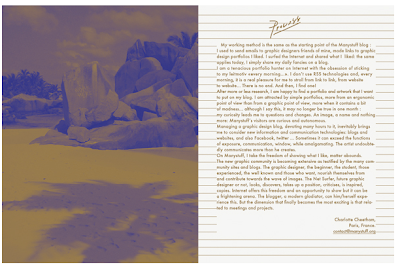 Process
My working method is the same as the starting point of the Manystuff blog :
I used to send emails to graphic designers friends of mine, made links to graphic
design portfolios I liked. I surfed the Internet and shared what I liked: the same
applies today. I simply share my daily fancies on a blog.
I am a tenacious portfolio hunter on Internet with the obsession of sticking
to my leitmotiv «every morning...». I don't use RSS technologies and, every
morning, it is a real pleasure for me to stroll from link to link, from website
to website... There is no end. And then, I find one!
After more or less research, I am happy to find a portfolio and artwork that I want
to put on my blog. I am attracted by simple portfolios, more from an ergonomic
point of view than from a graphic point of view, more when it contains a bit
of madness... although I say this, it may no longer be true in one month :
my curiosity leads me to questions and changes. An image, a name and nothing
more. Manystuff's visitors are curious and autonomous.
Managing a graphic design blog, devoting many hours to it, inevitably brings
me to consider new information and communication technologies: blogs and
websites, and also Facebook, twitter ... Sometimes it can exceed the functions
of exposure, communication, window, while amalgamating. The artist undoubte-
dly communicates more than he creates.
On Manystuff, I take the freedom of showing what I like, matter abounds.
The new graphic community is becoming extensive as testified by the many com
munity sites and blogs. The graphic designer, the beginner, the student, those
experienced, the well known and those who want, nourish themselves from
and contribute towards the wave of images. The Net Surfer, future graphic
designer or not, looks, discovers, takes up a position, criticises, is inspired,
copies. Internet offers this freedom and an opportunity to draw but it can be
a frightening arena. The blogger, a modern gladiator, can him/herself expe-
rience this. But the dimension that finally becomes the most exciting is that rela-
ted to meetings and projects.
Charlotte Cheetham,
Paris, France.
contact@manystuff.org